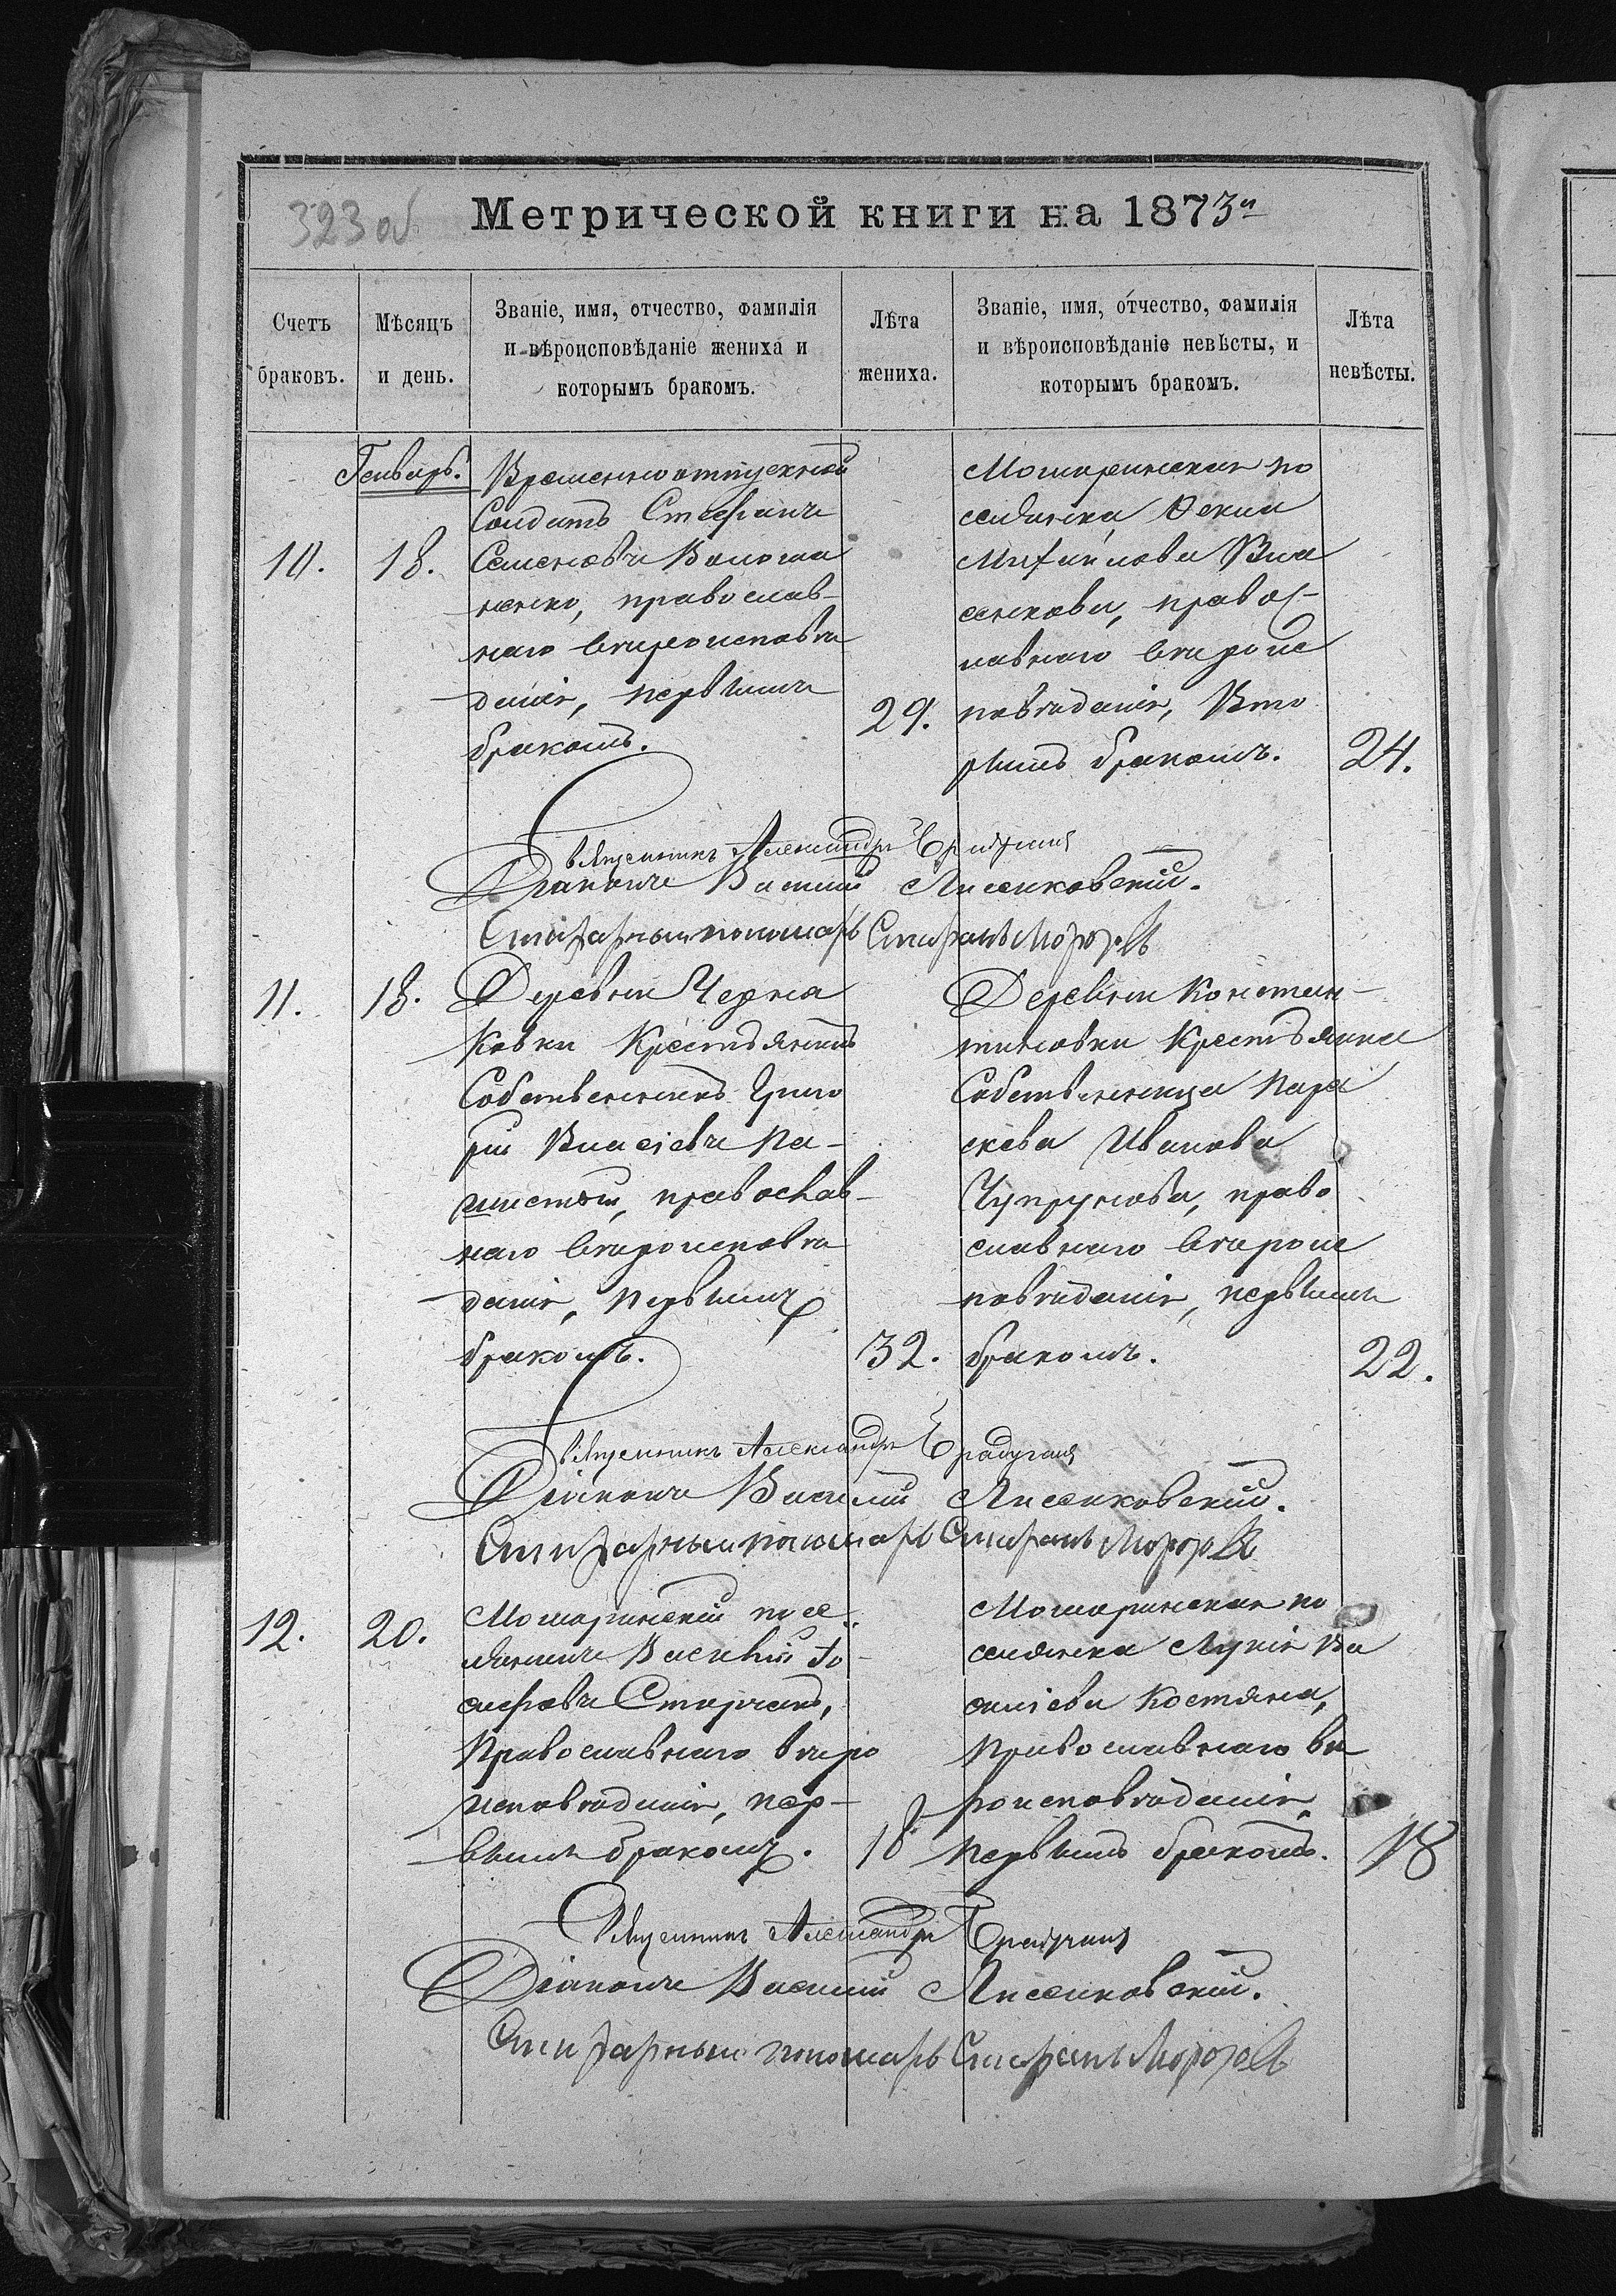 323 об
Метрической книги на 1873 г
Счетъ браковъ.
Мѣсяцъ и день.
Званіе, имя, отчество, фамилія и вѣроисповѣданіе жениха и которымъ бракомъ.
Лѣта жениха.
Званіе, имя, отчество, фамилія и вѣроисповѣданіе невѣсты, и которымъ бракомъ.
Лѣта невѣсты.
Генварь.
10.
18.
Временноотпускной
Солдатъ Стефанъ
Семеновъ Волоша
ненко, православ-
наго вѣроисповѣ
данія, первымъ
бракомъ.
29.
Мошоринская по
селянка Ѳекла
Михайлова Вла
сенкова, правос-
лавнаго вѣроис
повѣданія, Вто
рымъ бракомъ.
24.
Священникъ Александръ
Діаконъ Василій Лисенковскій.
Стихарный пономарь Стефанъ Морозовъ
11.
18.
Деревни Черна
ковки Крестьянинъ
Собственникъ Григо
рій Власіевъ Па-
шистый, православ-
наго вѣроисповѣ
данія, Первымъ
бракомъ.
32.
Деревни Констан-
тиновки Крестьянка
Собственница Пара
скева Иванова
Чупрунова, право
славнаго вѣроис
повѣданія, первымъ
бракомъ.
22.
Священникъ Александръ
Діаконъ Василій Лисенковскій.
Стихарный пономарь Стефанъ Морозовъ
12.
20.
Мошоринскій посе
лянинъ Василій Іо-
сифовъ Старчакъ,
Православнаго вѣро
исповѣданія, пер-
вымъ бракомъ.
18
Мошоринская по
селянка Лукія Ва
силіева Костяна,
Православнаго вѣ
роисповѣданія,
первымъ бракомъ.
18
Священникъ Александръ
Діаконъ Василій Лисенковскій.
Стихарный пономарь Стефанъ Морозовъ